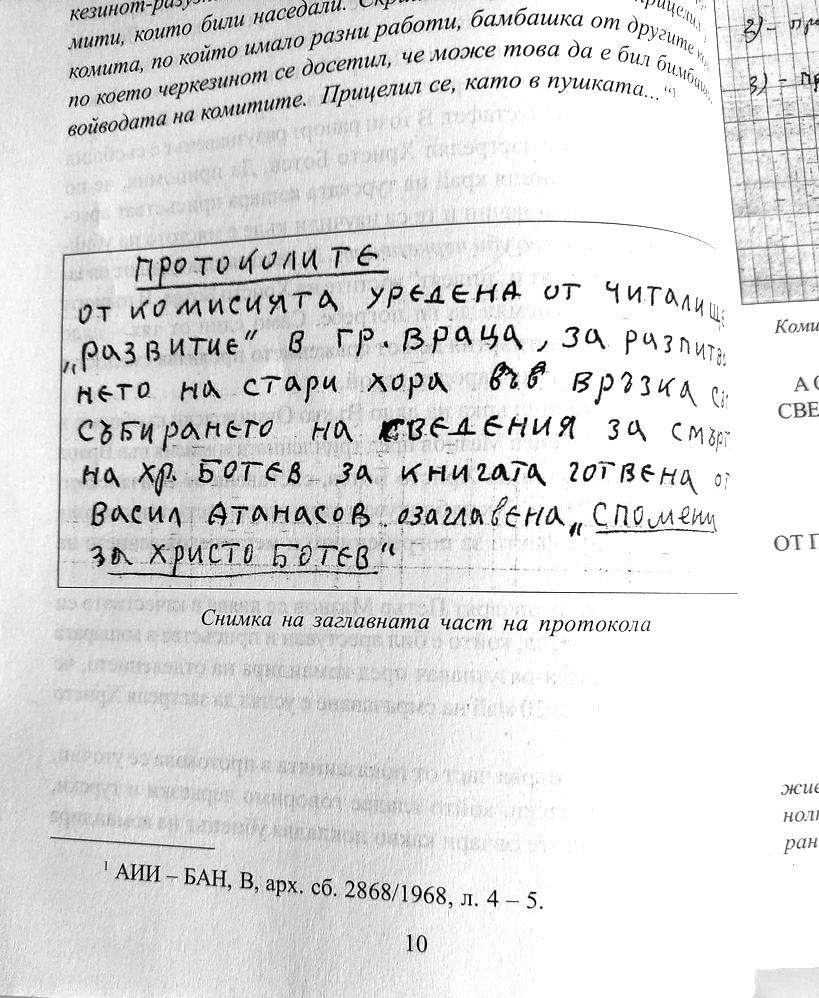 мити, които били наседали.
комита, по който имало разни работи, бамбашка от другите
по което черкезинот се досетил, че може това да е бил
войводата на комитите. Прицелил се, като в пушката..."1
ПРОТОКОЛИТЕ
ОТ КОМИСИЯТА УРЕДЕНА ОТ ЧИТАЛИЩЕ
„РАЗВИТИЕ" В ГР. ВРАЦА, ЗА РАЗПИТВА
НЕТО НА СТАРИ ХОРА ВЪВ ВРЪЗКА
СЪБИРАНЕТО НА СВЕДЕНИЯ ЗА СМЪРТ
НА ХР. БОТЕВ ЗА КНИГАТА ГОТВЕНА ОТ
ВАСИЛ АТАНАСОВ ОЗАГЛАВЕНА „СПОМЕНИ
ЗА ХРИСТО БОТЕВ"
Снимка на заглавната част на протокола
1 АИИ – БАН, В, арх. сб. 2868/1968, л. 4 – 5.
10
3) –
Коми
А С
СВЕ
ОТ П
жие
нол
ран